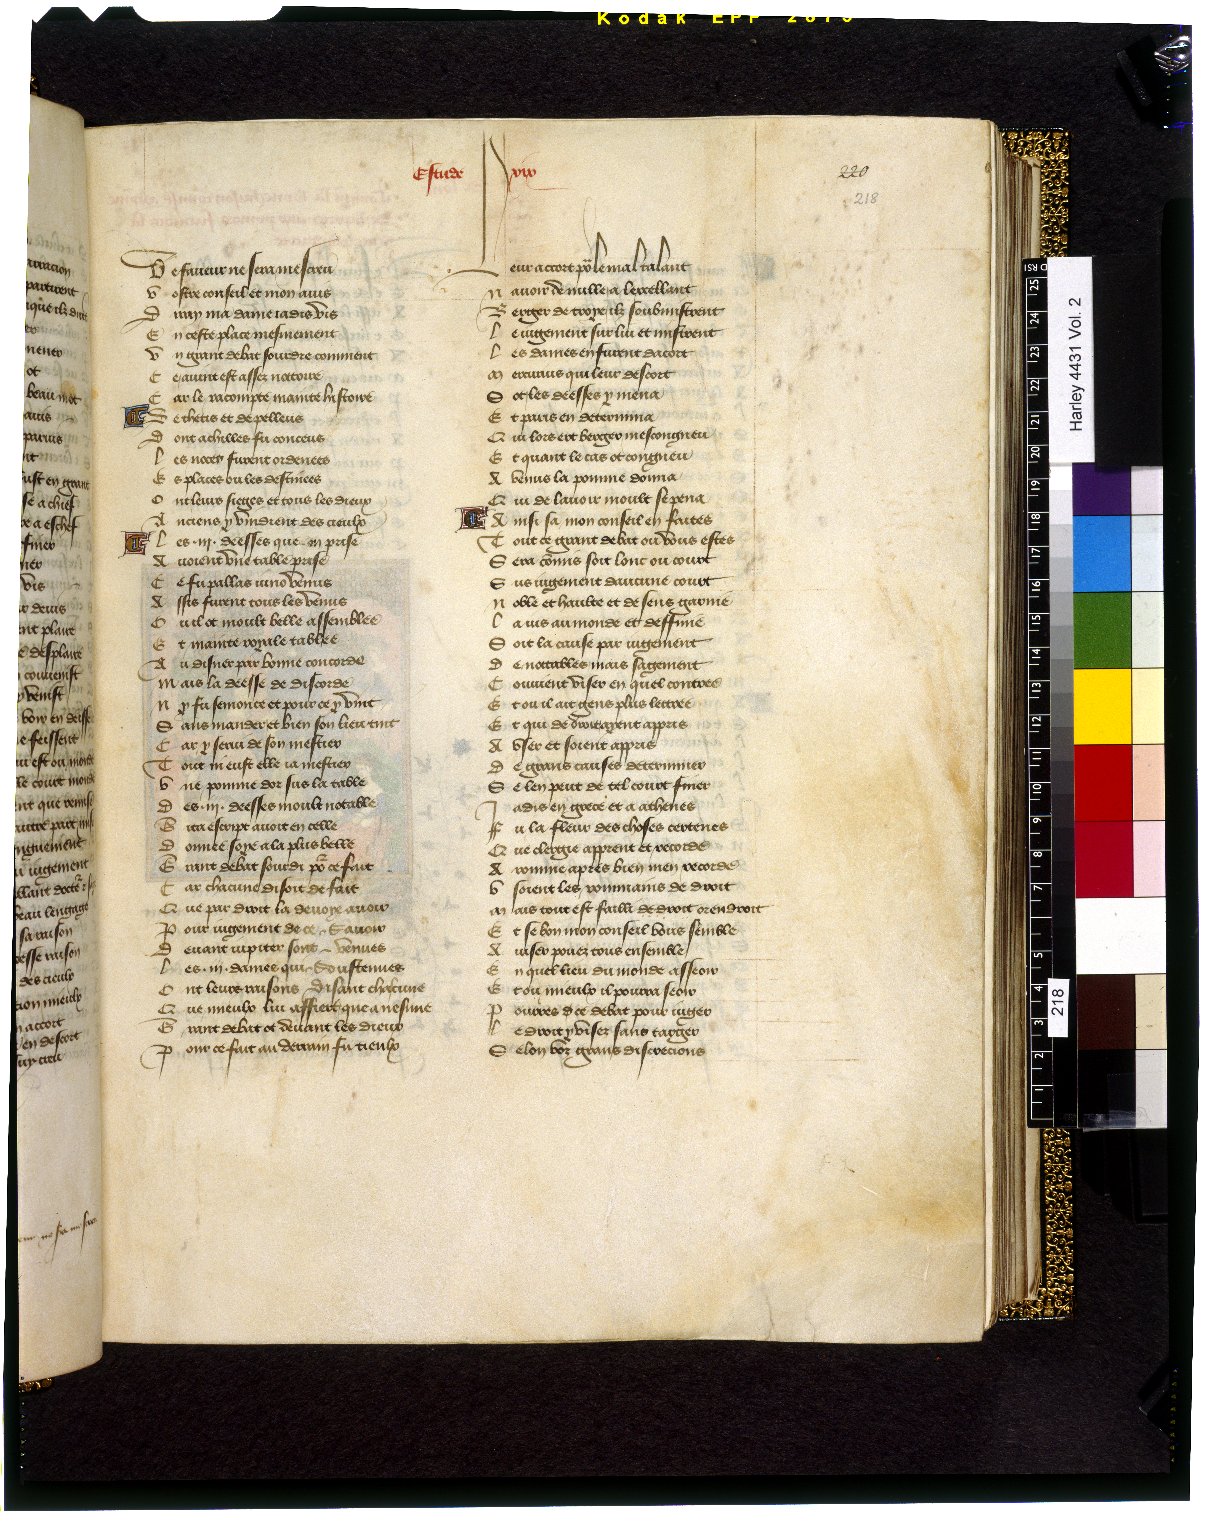 Kodak EPP 2075
Estude xix
220
218
De faueur ne sera mescreu
Vostre conseil et mon auis
Dvray ma dame iadis vis
En ceste place mesmement
Vn grant debat sourdre comment
Ce auint est assez nottoire
Car le racompte mainte histoire
De thetis et de pelleus
Dont achilles fu conceus
Les noces furent ordenees
Es places ou les destinees
Ont leurs sieges et tous les dieux
Anciens y vindrent des cieulx
Les .iii. deesses que ien prise
Auoient vne table prise
Ce fu pallas iuno venus
Assis furent tous les venus
Ou il ot moult belle assemblee
Et mainte royale tablee
Au disner par bonne concorde
Mais la deesse de discorde
Ny fu semonce et pour ce y vint
Sans mander et bien son lieu tint
Car y serui de son mestier
Tout ni eust elle ia mestier
Vne pomme dor sus la table
Des .iii. deesses moult notable
Gita escript auoit en celle
Donnee soye a la plus belle
Grant debat sourdi po ce fait
Car chacune disoit de fait
Que par droit la deuoye auoir
Pour iugement de ce sauoir
Deuant iupiter sont venues
Les .iii. dames qui soustenues
Ont leurs raisons disant chacune
Que mieulx lui affiert que a nesune
Grant debat ot deuant les dieux
Pour ce fait au derrain fu tieulx
Leur accort po le mal talant
Nauoir de nulle a lexcellant
Berger de troye ilz soubmistrent
Le iugement sur lui et mistrent
Les dames en furent dacort
Mercurius qui leur descort
Sot les deesses y mena
Et paris en determina
Qui lors ert berger mescongneu
Et quant le cas ot congneu
A venus la pomme donna
Qui de lauoir moult se pena
Ainsi sa mon conseil en faites
Tout ce grant debat ou vous estes
Sera comis soit lonc ou court
Sus iugement daucune court
Noble et haulte et de sens garnie
La vis au monde et deffinie
Soit la cause par iugement
De nottables mais sagement
Couuient viser en quel contree
Et ou il ait gens plus lettree
Et qui de droit ayent appris
A vser et soient appris
De grans causes determiner
Se len peut de tel court finer
Jadis en grece et a athenes
Fu la fleur des choses certenes
Que clergie apprent et recorde
A romme apres bien men recorde
Vsoient les rommains de droit
Mais tout est failli de droit orendroit
Et se bon mon conseil vous semble
Auiser pouez tous ensemble
En quel lieu du monde asseoir
Et ou mieulx il pourra seoir
Pourres dce debat pour iuger
Le droit y viser sans targer
Selon voz grans discrecions
Harley 4431 Vol. 2
218
25
24
23
22
21
20
19
18
17
16
15
14
13
12
11
10
9
8
7
5
4
3
2
1